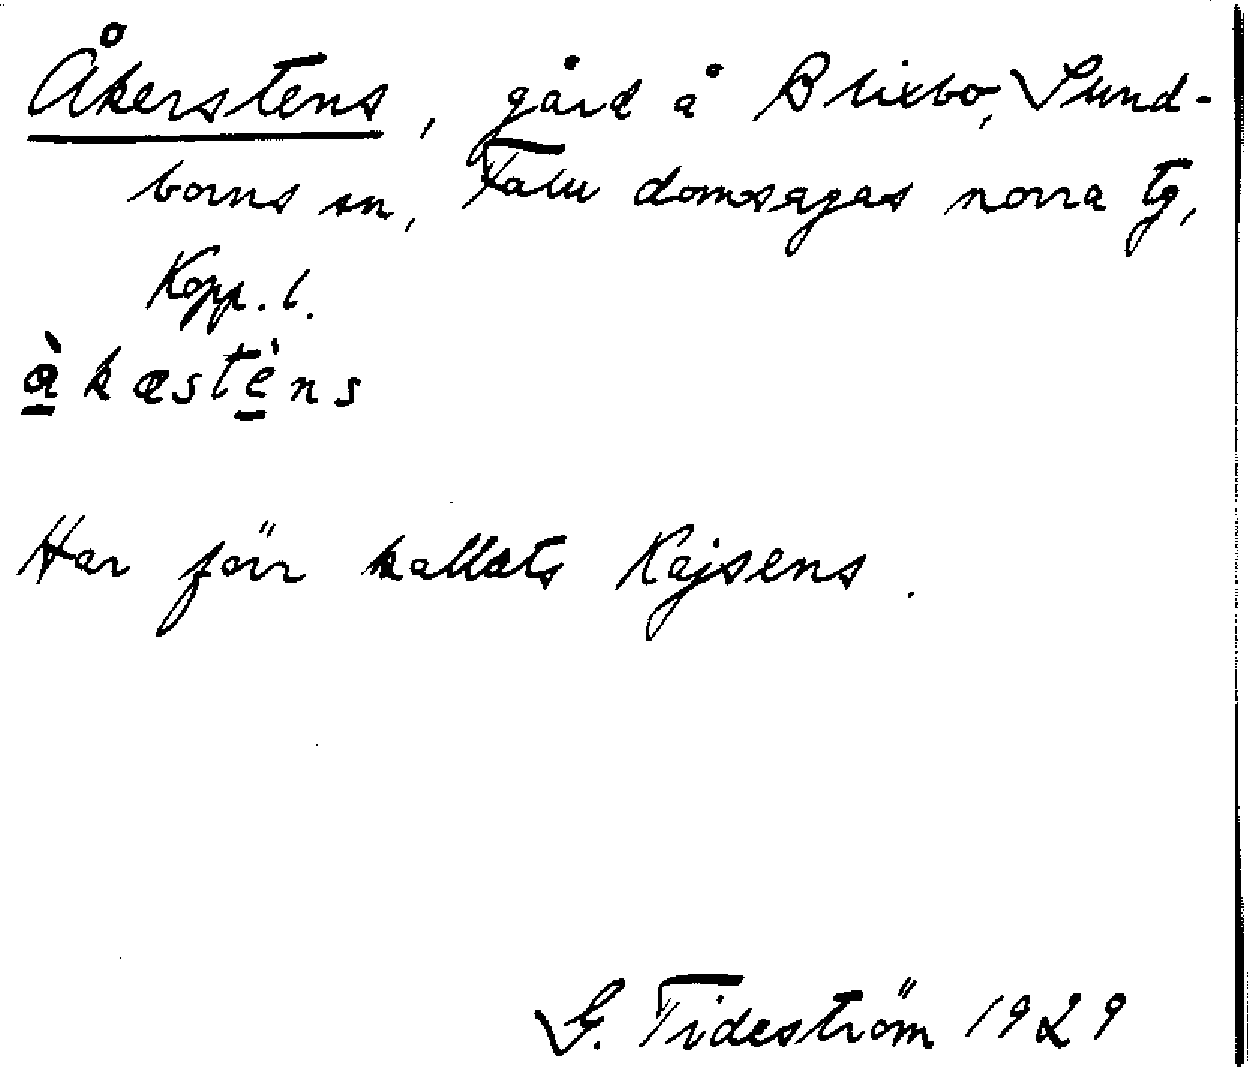 Åkerstens, gård å Blixbo, Sund-
borns sn, Falu domsagas norra tg,
Kopp. l.
àkæstèns
Har förr kallats Kajsens.
G. Tideström 1929